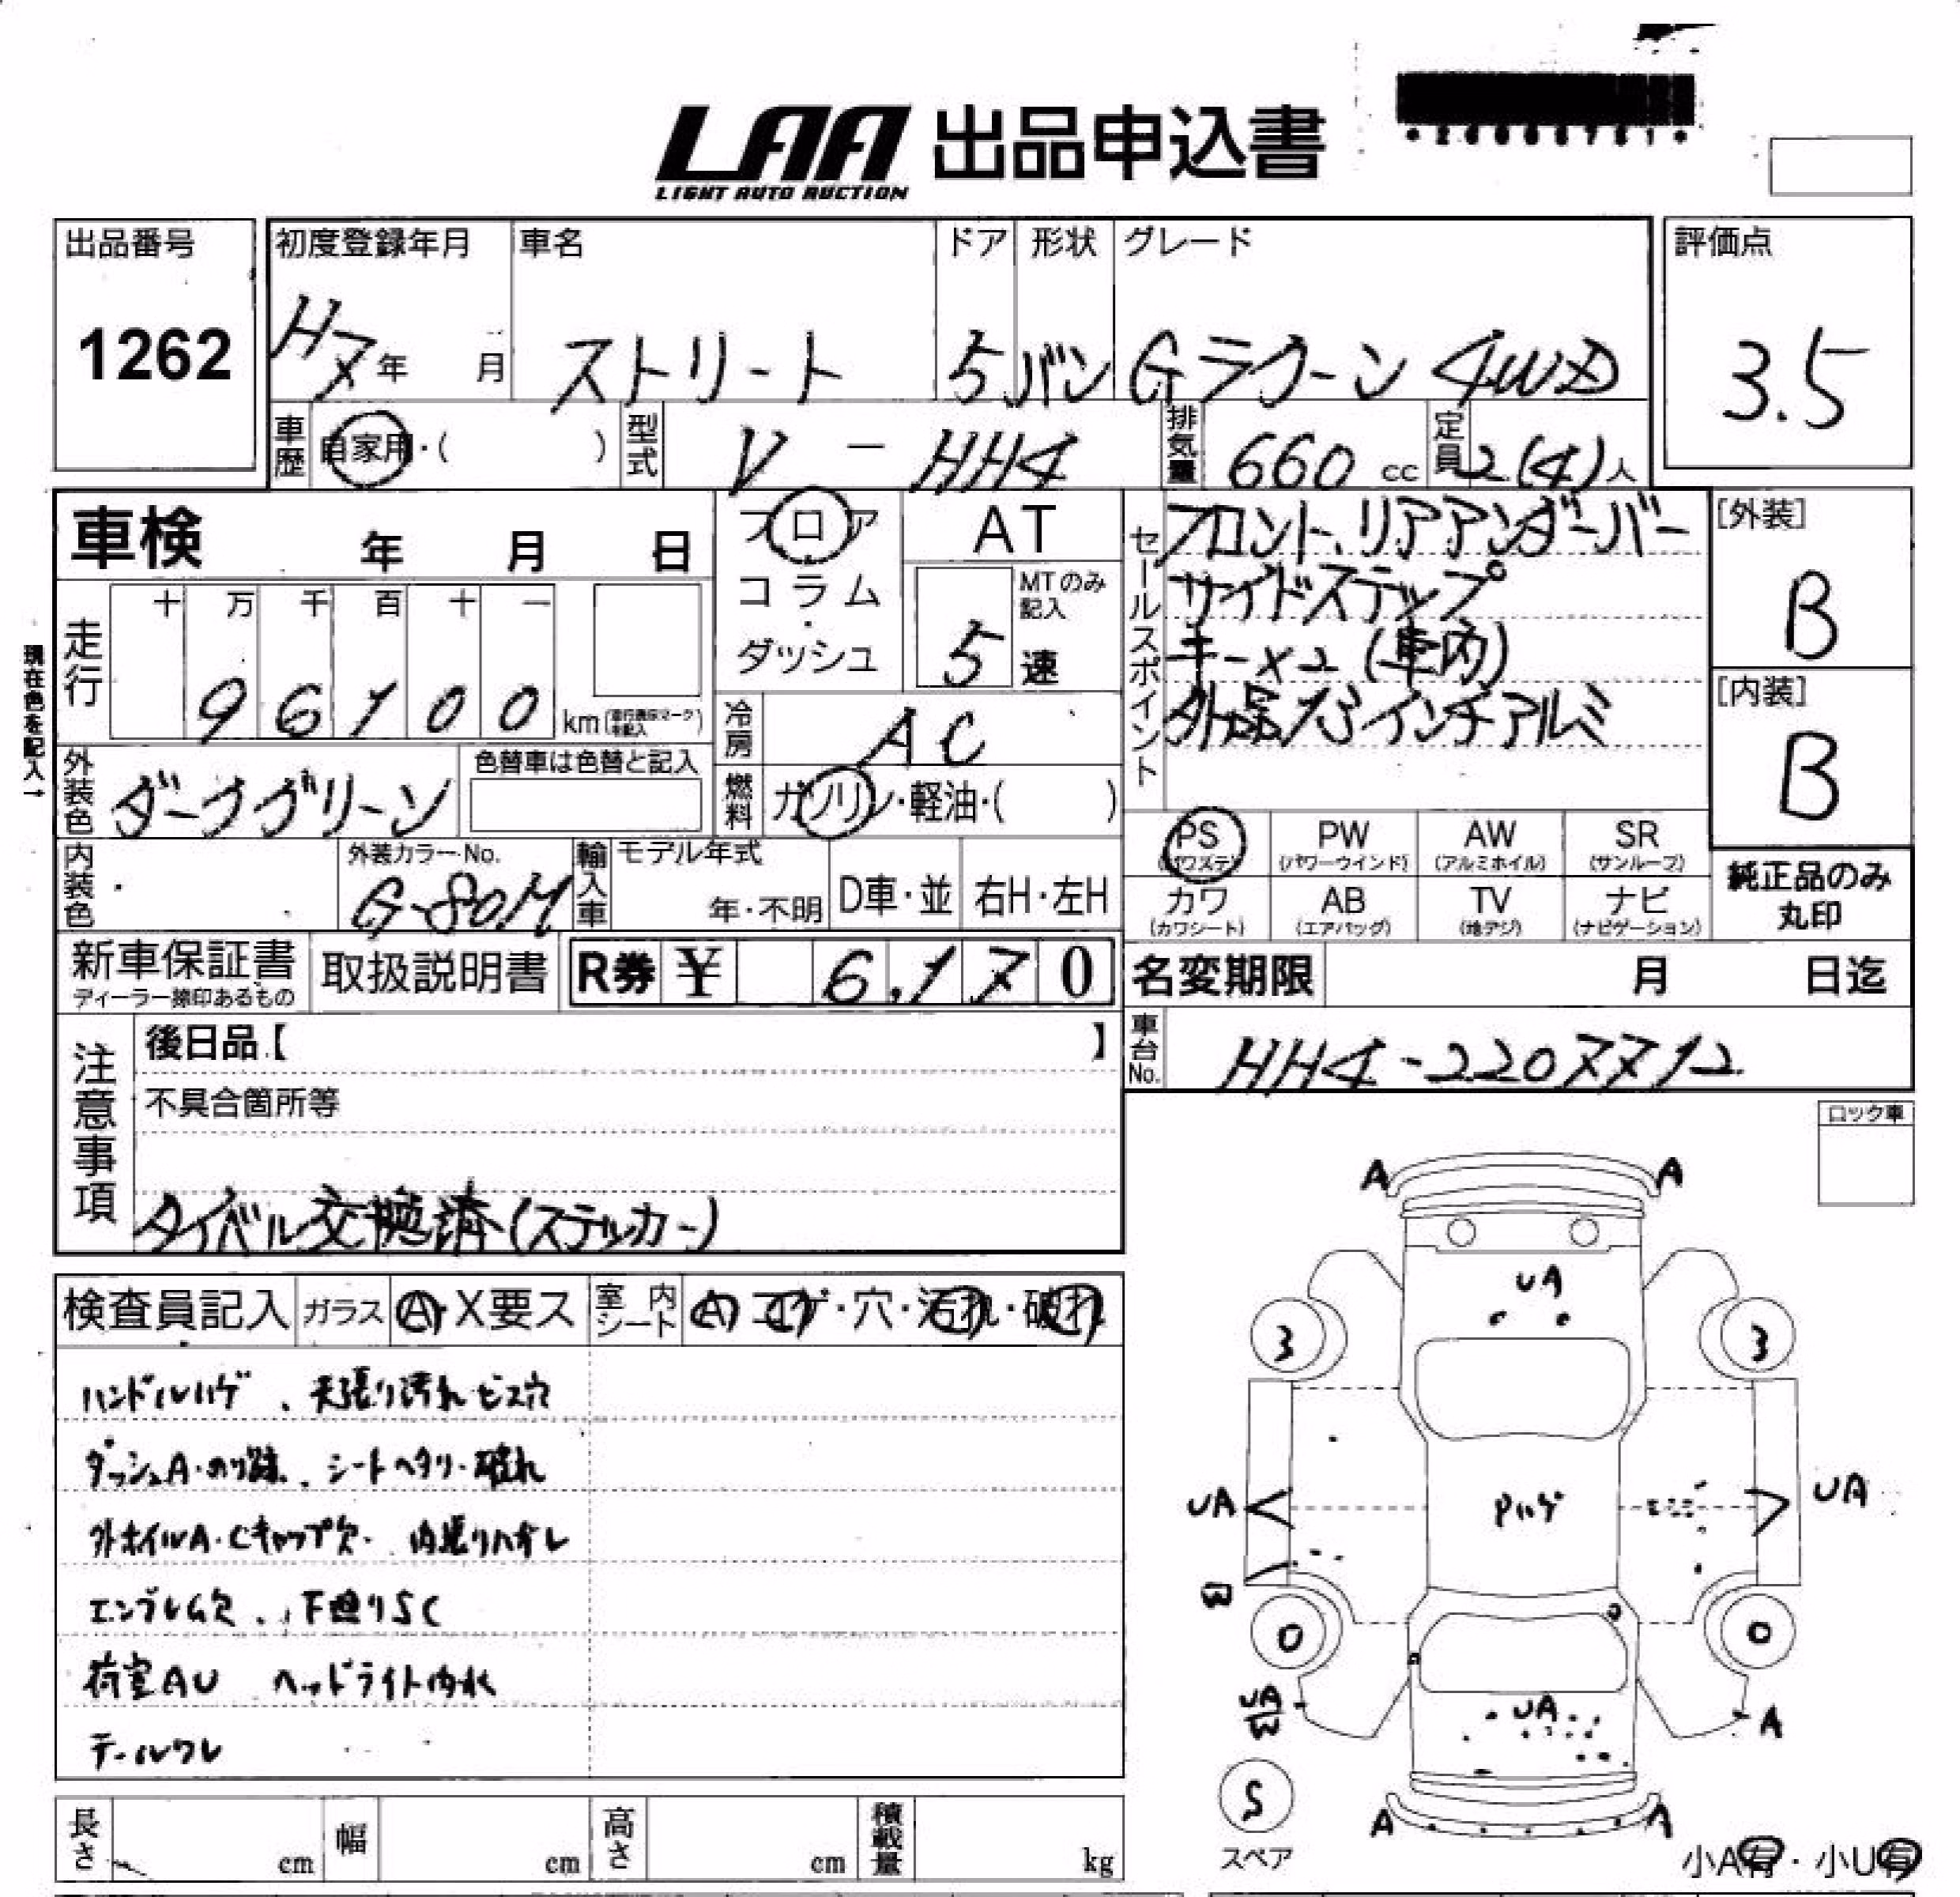 LAA 出品申込書
LIGHT AUTO AUCTION
出品番号
1262
初度登録年月 車名 ドア 形状 グレード
H7年 月 ストリート 5 バン Gラクーン 4WD
評価点
3.5
車歴 自家用・( ) 型式 V-HH4 排気量 660 cc 定員 2(4)人
車検 年 月 日
フロア
コラム
・
ダッシュ
AT
MTのみ記入
5 速
セールスポイント
フロント、リアアンダーバー
サイドステップ
キーx2 (車内)
外品13インチアルミ
[外装]
B
[内装]
B
現在色を記入→
走行 十 万 千 百 十 一
96100 km
冷房 AC
燃料 ガソリン・軽油・( )
外装色 ダークグリーン 色替車は色替と記入
内装色 外装カラーNo. G-80M
輸入車 モデル年式 年・不明 D車・並 右H・左H
PS (パワステ) PW (パワーウインド) AW (アルミホイル) SR (サンルーフ)
カワ (カワシート) AB (エアバッグ) TV (地デジ) ナビ (ナビゲーション)
純正品のみ
丸印
新車保証書 ディーラー捺印あるもの 取扱説明書 R券 ¥ 6,170
名変期限 月 日迄
車台No. HH4-2207712
注意事項
後日品【 】
不具合箇所等
タイベル交換済(ステッカー)
ロック車
検査員記入 ガラス A・X要ス 室内シート A・コゲ・穴・汚れ・破れ
ハンドルハゲ、天張り汚れ・ビス穴
ダッシュA・のり跡、シートヘタリ・破れ
外ホイルA・Cキャップ欠・内張りハガレ
エンブレム欠、下廻りSC
荷室AU ヘッドライト内水
テールワレ
A A
UA
3 3
UA Pハゲ UA
W
0 0
UA
W UA A
S
スペア
A A
小A有・小U有
長さ cm 幅 cm 高さ cm 積載量 kg